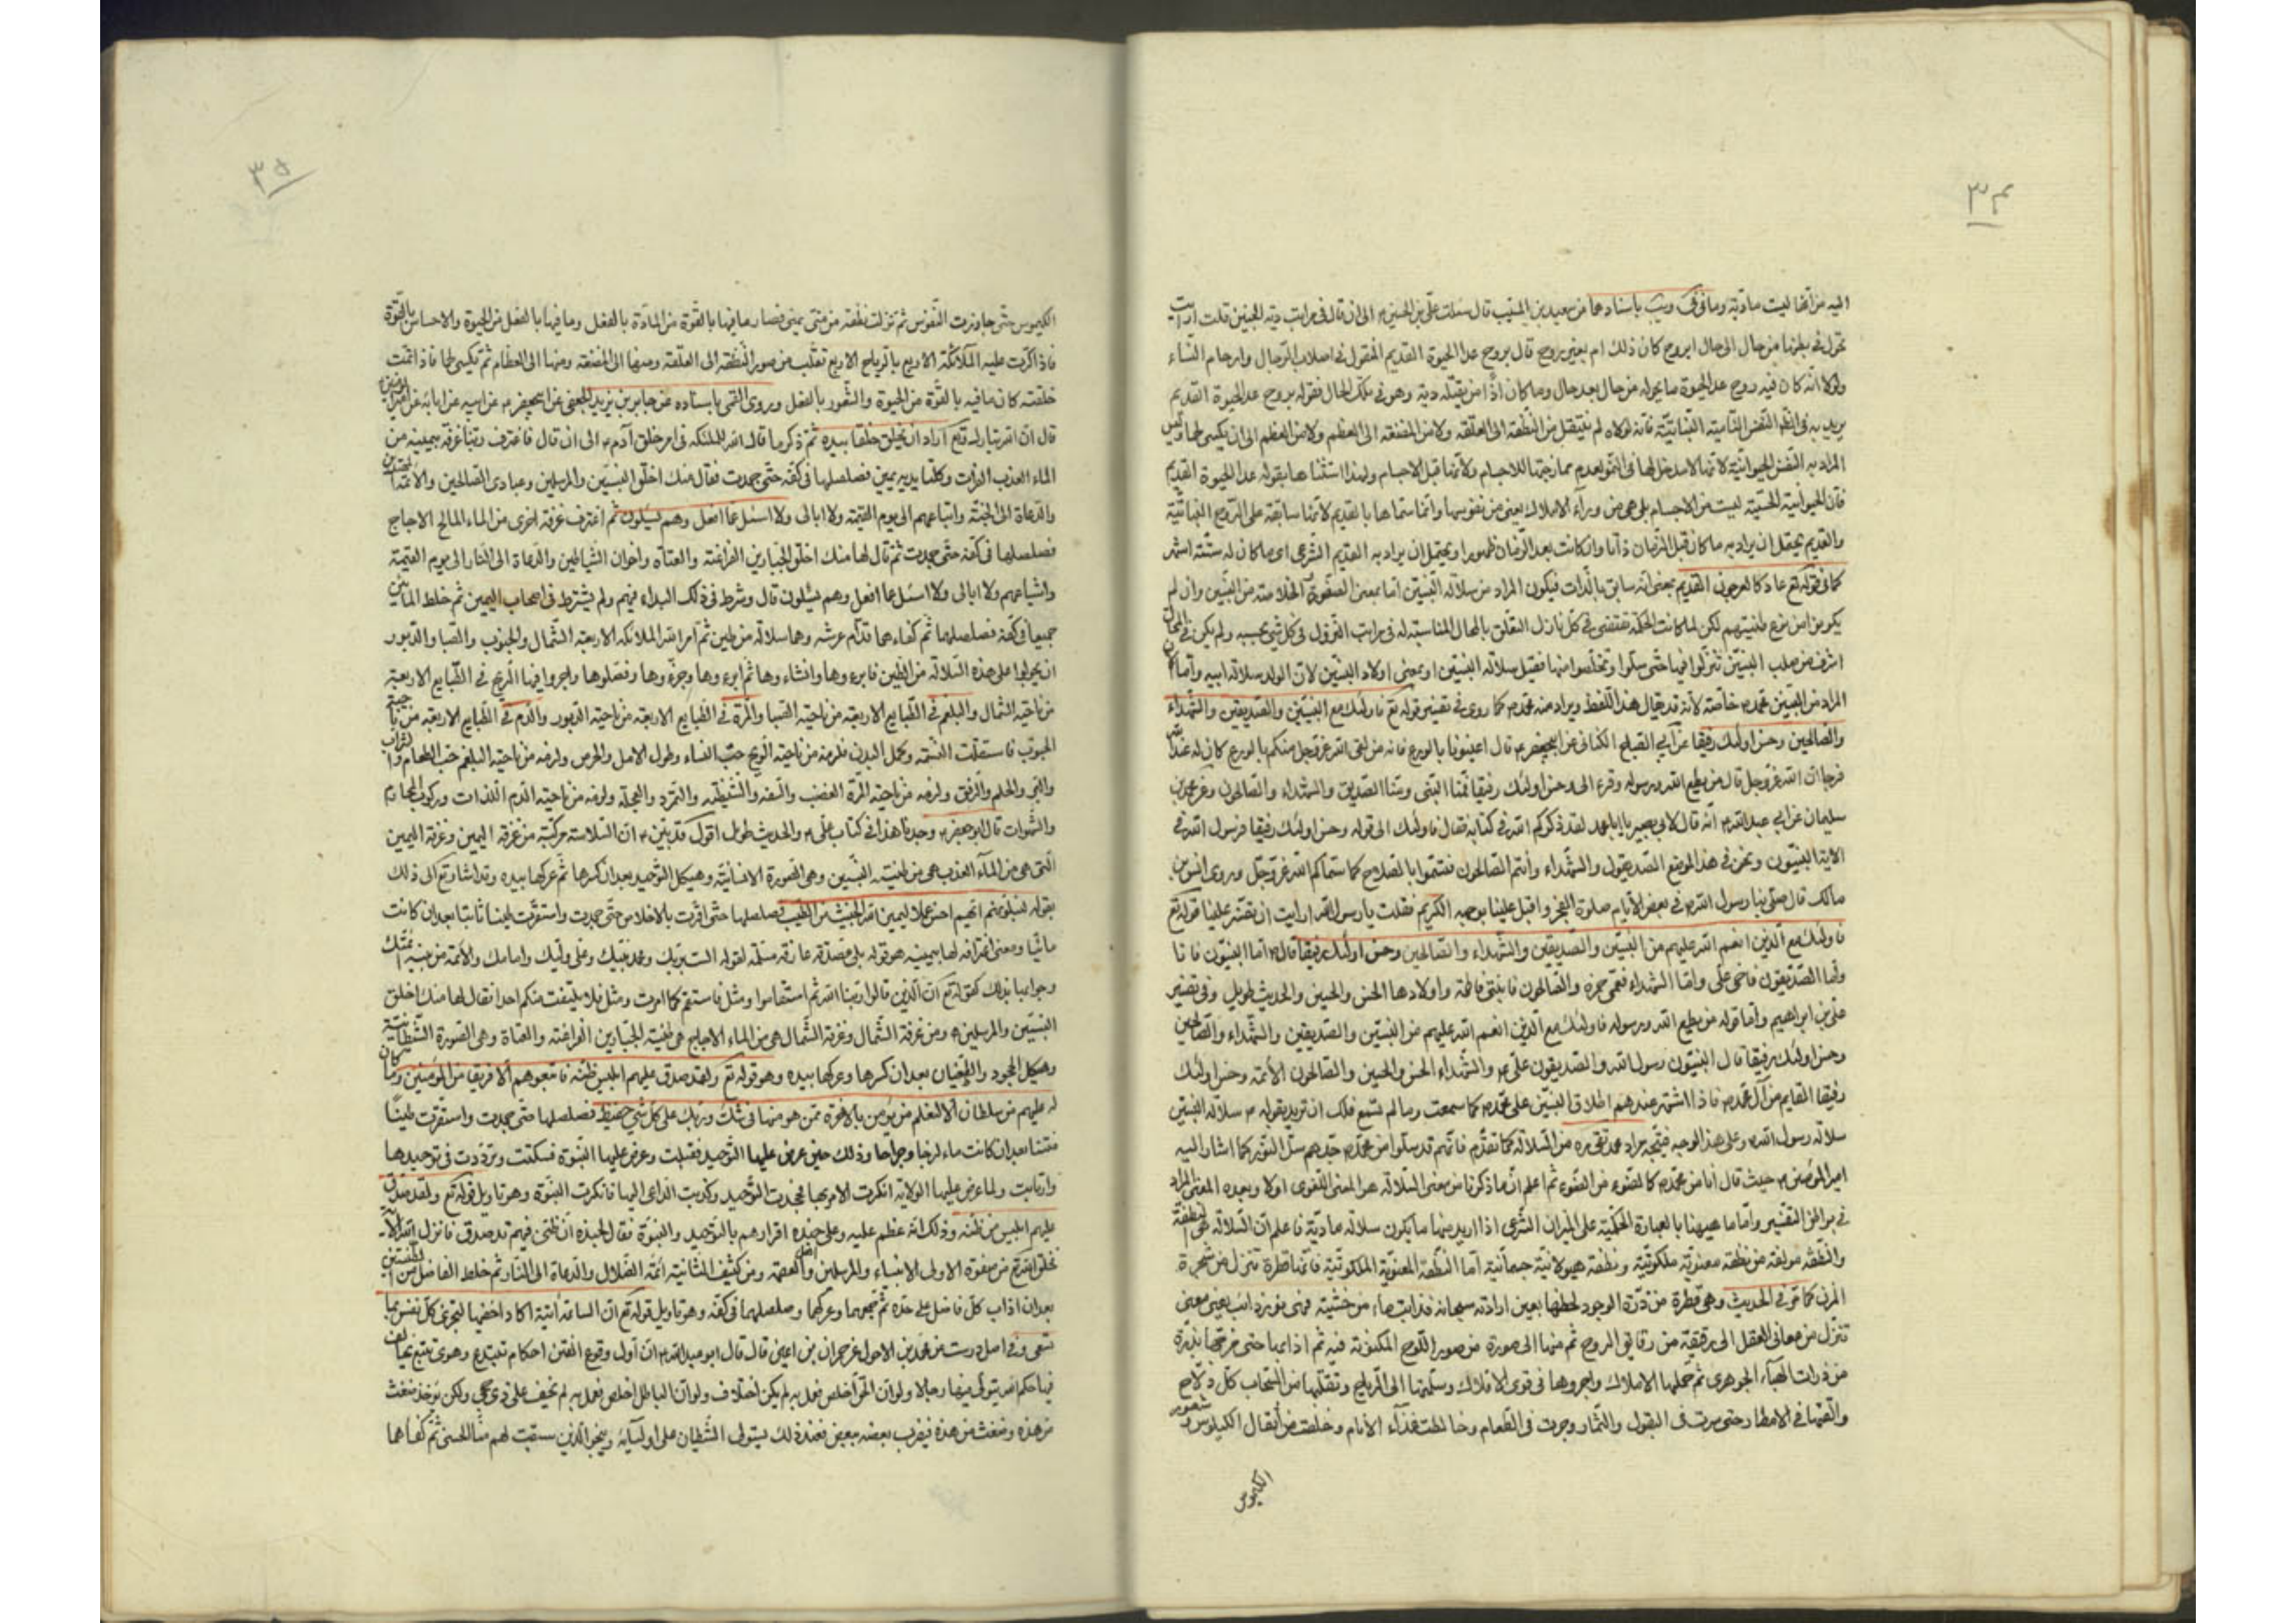 ٣٤
اليه من انها ليست مادّية وما في في ويب باسنادهما عن سعيد بن المسيّب قال سئلت عليّ بن الحسين ۴ الى ان قال في مراتب دية الجنين قلت ارايت
تحوّل في بطنها من حال الى حال ابروح كان ذلك ام بغير روح قال بروح عدا الحيوة القديم المنقول في اصلاب الرّجال وارحام النّساء
ولولا انّه كان فيه روح عدا الحيوة ما يحوله من حال بعد حال وما كان اذًا من يقتله دية وهو في تلك الحال فقوله بروح عدا الحيوة القديم
يريد به النفس النّامية النّباتيّة فانه لولاه لم تنتقل من النّطفة الى العلقة ولا من المضغة الى العظم ولا من العظم الى ان يكسى لحما وليس
المراد به النّفس الحيوانيّة لانّها لا مدخل لها في النّمو لعدم ممازجتها للاجسام ولانّها قبل الاجسام ولهذا استثناها بقوله عدا الحيوة القديم
فان الحيوانية الحسّية ليست من الاجسام بل هي من وراء الافلاك يعني من نفوسها وانّما سمّاها بالقديم لانّها سابقة على الرّوح النّباتيّة
والقديم يحتمل ان يراد به ما كان قبل الزّمان ذاتا وان كانت بعد الزّمان ظهورا ويحتمل ان يراد به القديم الشّرعي اي ما كان له ستّة اشهر
كما في قوله تع عاد كالعرجون القديم بمعنى انّه سابق بالذّات فيكون المراد من سلالة النّبيّين امّا بمعنى الصّفوة الخلاصة من النّبيّين وان لم
يكونوا من نوع طينتهم لكن لما كانت الحكمة تقتضي في كلّ نازل التعلّق بالمحال المناسبة له في مراتب النّزول في كلّ شئ بحسبه ولم يكن في المحال
اشرف من صلب النّبيّين تنزّلوا فيها حتّى سلّوا وتخلّصوا منها فقيل سلالة النّبيّين او بمعنى اولاد النّبيّين لانّ الولد سلالة ابيه وامّا ان
المراد من النّبيّين محمّد خاصّة لانّه قد يقال هذا اللّفظ ويراد منه محمّد كما روى في تفسير قوله تع فاولئك مع النّبيّين والصّديقين والشّهداء
والصّالحين وحسن اولئك رفيقا عن ابي الصّباح الكناني عن ابيجعفر ۴ قال اعينونا بالورع فانه من لقى الله عزّ وجل منكم بالورع كان له عند الله
فرجا انّ الله عزّ وجل قال من يطع الله ورسوله وقرء الى وحسن اولئك رفيقا فمنّا النّبي ومنّا الصّديق والشّهداء والصّالحون وعن محمّد بن
سليمان عن ابي عبد الله ۴ انّه قال لابي بصير يا ابا محمد لقد ذكركم الله في كتابه فقال فاولئك الى قوله وحسن اولئك رفيقا فرسول الله في
الاية النّبيّون ونحن في هذا الموضع الصّديقون والشّهداء وانتم الصّالحون فتسمّوا بالصّلاح كما سمّاكم الله عزّ وجلّ وروى انس بن
مالك قال صلّى بنا رسول الله في بعض الايّام صلوة الفجر واقبل علينا بوجهه الكريم فقلت يا رسول الله ارايت ان تفسّر علينا قوله تع
فاولئك مع الّذين انعم الله عليهم من النّبيّين والصّديقين والشّهداء والصّالحين وحسن اولئك رفيقا قال امّا النّبيّون فانا
وامّا الصّديقون فاخي علي وامّا الشّهداء فعمّي حمزة والصّالحون فابنتي فاطمة واولادها الحسن والحسين والحديث طويل وفي تفسير
علي بن ابراهيم وامّا قوله من يطع الله ورسوله فاولئك مع الّذين انعم الله عليهم من النّبيّين والصّديقين والشّهداء والصّالحين
وحسن اولئك رفيقا قال النّبيّون رسول الله والصّديقون علي ۴ والشّهداء الحسن والحسين والصّالحون الائمّة وحسن اولئك
رفيقا القايم من آل محمّد فاذا اشتهر عندهم اطلاق النبيّين على محمّد كما سمعت وما لم تسمع فلك ان تريد بقوله ۴ سلالة النّبيّين
سلالة رسول الله وعلى هذا الوجه فيتّجه مراد محمد تقي ره من السّلالة كما تقدّم فانّهم قد سلّوا من محمّد جدّهم سلّ النّور كما اشار اليه
امير المؤمنين ۴ حيث قال انا من محمّد كالضوء من الضّوء ثم اعلم انّ ما ذكرنا من معنى السّلالة هو المعنى اللّغوي اولا وبعده المعنى المراد
في بواطن التّفسير وامّا ما هيهنا بالعبارة الحكميّة على الميزان الشّرعي اذا اريد منها ما يكون سلالة مادّية فاعلم انّ السّلالة هي النّطفة
والنّطفة مؤلّفة من نطفة معنويّة ملكوتيّة ونطفة هيولانيّة جسمانيّة امّا النّطفة المعنويّة الملكوتيّة فانّها قطرة تنزل من شجرة
المزن كما في الحديث وهي قطرة من ذرّة الوجود لحظها بعين ارادته سبحانه فذابت ماء من خشيته فهي نور ذائب يعني معنى
تنزّل من معاني العقل الى رقيقة من رقايق الروح ثم منها الى صورة من صور اللّوح المكنونة فيه ثم اذابها حتى مزجها بذرّة
من ذرات الهباء الجوهري ثم حملها الاملاك واجروها في قوى الافلاك وسلّمتها الى الرّياح وتقلبها من السّحاب كلّ دلّاح
والقتها في الامطار حتى سرت في البقول والثمار وجرت في الطّعام وخالطت غذآء الانام وخلصت من اثقال الكيلوس
الكيموس
٣٥
الكيموس حتّى جاوزت النّفوس ثم نزلت نطفة من منّي يمنى فصار ما فيها بالقوّة من المادّة بالفعل وما فيها بالفعل من الحيوة والاحساس بالقوّة
فاذا كرّت عليه الملائكة الاربع بالرّياح الاربع تقلّب من صور النّطفة الى العلقة ومنها الى المضغة ومنها الى العظام ثم تكسى لحما فاذا تمّت
خلقته كان ما فيه بالقوّة من الحيوة والشّعور بالفعل وروى القمي باسناده عن جابر بن يزيد الجعفي عن ابيجعفر ۴ عن ابيه عن ابائه عن امير المؤمنين
قال انّ الله تبارك وتع اراد ان يخلق خلقا بيده ثم ذكر ما قال الله للملئكة في امر خلق آدم ۴ الى ان قال فاغترف ربّنا غرفة بيمينه من
الماء العذب الفرات وكلتا يديه يمين فصلصلها في كفّه حتّى جمدت فقال منك اخلق النّبيّين والمرسلين وعبادي الصّالحين والائمّة المهتدين
والدّعاة الى الجنّة واتباعهم الى يوم القيمة ولا ابالي ولا اسئل عمّا افعل وهم يسئلون ثم اغترف غرفة اخرى من الماء المالح الاجاج
فصلصلها في كفّه حتّى جمدت ثم قال لها منك اخلق الجبّارين الفراعنة والعتاة واخوان الشّياطين والدّعاة الى النّار الى يوم القيمة
واشياعهم ولا ابالي ولا اسئل عمّا افعل وهم يسئلون قال وشرط في ذلك البداء فيهم ولم يشترط في اصحاب اليمين ثم خلط المائين
جميعا في كفّه فصلصلهما ثم كفاهما قدّام عرشه وهما سلالة من طين ثم امر الله الملائكة الاربعة الشّمال والجنوب والصّبا والدّبور
ان يجولوا على هذه السّلالة من الطّين فابرءوها وانشاءوها ثم ابرءوها وجزّءوها وفصّلوها واجروا فيها الرّيح في الطّبايع الاربعة
من ناحية الشّمال والبلغم في الطّبايع الاربعة من ناحية الصّبا والمرّة في الطّبايع الاربعة من ناحية الدّبور والدّم في الطّبايع الاربعة من ناحية
الجنوب فاستقلّت النّسمة وكمل البدن فلزمه من ناحية الرّيح حبّ النّساء وطول الامل والحرص ولزمه من ناحية البلغم حبّ الطّعام والشّراب
والبرّ والحلم والرّفق ولزمه من ناحية المرّة الغضب والسّفه والشّيطنة والتمرّد والعجلة ولزمه من ناحية الدّم اللّذّات وركوب المحارم
والشّهوات قال ابو جعفر ۴ وجدنا هذا في كتاب علي ۴ والحديث طويل اقول قد بيّن ۴ انّ السّلالة مركّبة من غرفة اليمين وغرفة اليمين
الّتي هي من المآء العذب هي من طينة النّبيّين وهي الصّورة الانسانيّة وهيكل التّوحيد بعد ان كسرها ثم عركها بيده وقد اشار تع الى ذلك
بقوله لنبلونهم ايّهم احسن عملا ليميز الله الخبيث من الطّيّب فصلصلها حتّى اقرّت بالاخلاص حتّى جمدت واستقرّت طينا ثابتا بعد ان كانت
مائيّا ومعنى اغترافه لها بيمينه هو قوله بلى مصدّقة عارفة مسلّمة لقوله الست بربّك ومحمد نبيّك وعلي وليّك وامامك والائمّة من بنيه ائمّتك
وجوابها بذلك كقوله تع انّ الّذين قالوا ربّنا الله ثم استقاموا ومثل فاستقم كما امرت ومثل فلا يلتفت منكم احد فقال لها منك اخلق
النّبيّين والمرسلين ومن غرفة الشّمال وغرفة الشّمال هي من الماء الاجاج هي طينة الجبّارين الفراعنة والعتاة وهي الصّورة الشّيطانيّة
وهيكل الجحود والطّغيان بعد ان كسرها وعركها بيده وهو قوله تع ولقد صدق عليهم ابليس ظنّه فاتبعوهم الّا فريقا من المؤمنين وما كان
له عليهم من سلطان الّا لنعلم من يؤمن بالاخرة ممّن هو منها في شكّ وربّك على كلّ شئ حفيظ فصلصلها حتّى جمدت واستقرّت طينًا
منتنا بعد ان كانت ماء لزجا وجراحا وذلك حين عرض عليها التّوحيد فقبلت وعرض عليها النّبوّة فسكتت وتردّدت في توحيدها
وارتابت ولما عرض عليها الولاية انكرت الامر بها فجحدت التّوحيد وكذبت الداعي اليها فانكرت النّبوّة وهو تاويل قوله تع ولقد صدق
عليهم ابليس ظنّه وذلك انّه عظم عليه وعلى جنده اقرارهم بالتّوحيد والنّبوّة فقال لجنده انّ ظنّي فيهم قد صدق فانزل الله الآية
فخلق الله تع من صفوة الاولى الانبياء والمرسلين والعصمة ومن كثيف الثّانية ائمّة الضّلال والدّعاة الى النّار ثم خلط الفاضل من الطينتين
بعد ان اذاب كلّ فاضل على حدة ثم جمعهما وعركهما وصلصلهما في كفّه وهو تاويل قوله تع انّ السّاعة آتية اكاد اخفيها لتجزى كلّ نفس بما
تسعى وفي اصل درست عن محمّد بن الاحول عن حمران بن اعين قال قال ابو عبد الله ۴ انّ اوّل وقوع الفتن احكام تبتدع وهوى يتّبع يخالف
فيها حكم الله يتولّى فيها رجالا ولو انّ الحقّ اخلص فعمل به لم يكن اختلاف ولو انّ الباطل اخلص فعمل به لم يخف على ذي حجى ولكن يؤخذ ضغث
من هذه وضغث من هذه فيضرب بعضه ببعض فعند ذلك يستولى الشّيطان على اوليآئه وينجو الّذين سبقت لهم منّا الحسنى ثم كفاهما